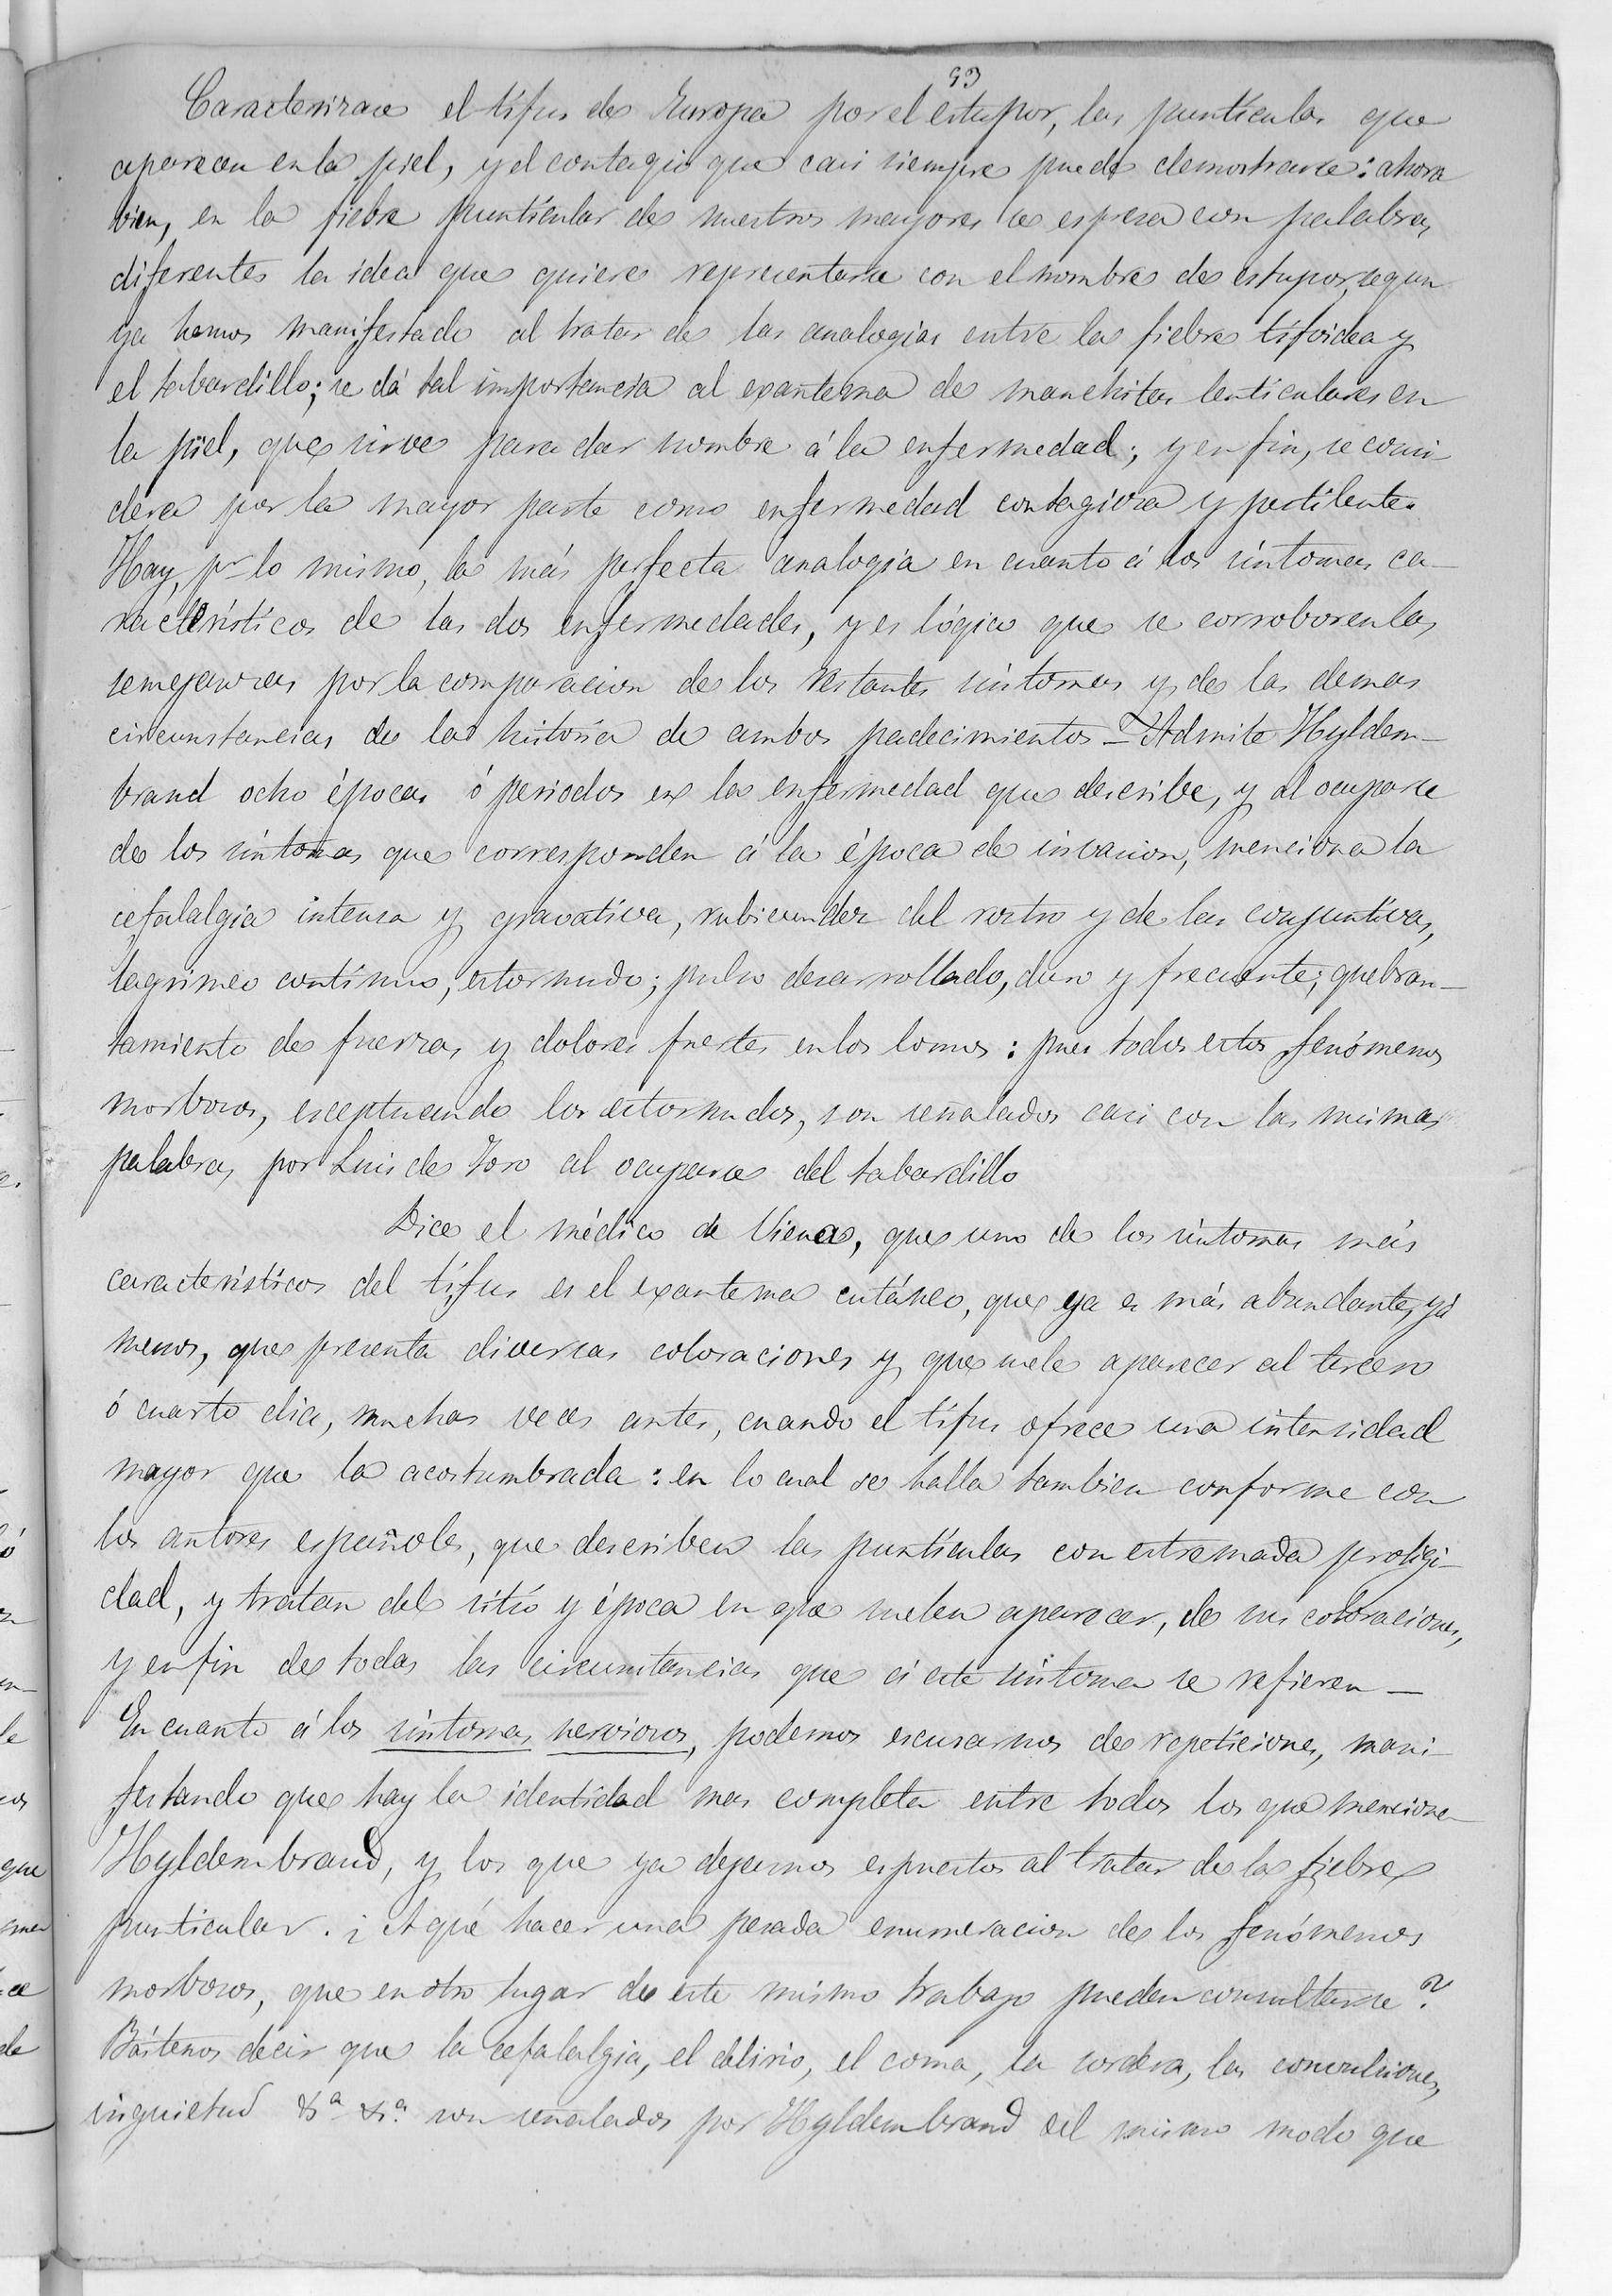 53
Caracterizase el tífus de Europa por el estupor, las puntículas que
aparecen en la piel, y el contagio que casi siempre puede demostrarse: ahora
bien, en la fiebre puntícular de nuestros mayores se espresa con palabras
diferentes la idea que quiere representarse con el nombre de estupor, segun
ya hemos manifestado al tratar de las analogías entre la fiebre tifoidea y
el tabardillo; se dá tal importancia al exantema de manchitas lenticulares en
la piel, que sirve para dar nombre á la enfermedad; y en fin, se consi-
dera por la mayor parte como enfermedad contagiosa y pestilente.
Hay, pr lo mismo, la más perfecta analogía en cuanto á los síntomas ca-
racterísticos de las dos enfermedades, y es lógico que se corroboren las
semejanzas por la comparacion de los restantes síntomas y de las demas
circunstancias de la história de ambos padecimientos — Admite Hyldem-
brand ocho épocas ó periodos en la enfermedad que describe, y al ocuparse
de los síntomas que corresponden á la época de invasion, menciona la
cefalalgia intensa y gravativa, rubicundez del rostro y de las conjuntivas,
lagrimeo contínuo, estornudo; pulso desarrollado, duro y frecuente; quebran-
tamiento de fuerzas y dolores fuertes en los lomos: pues todos estos fenómenos
morbosos, esceptuando los estornudos, son señalados casi con las mismas
palabras por Luis de Toro al ocuparse del tabardillo
Dice el médico de Viena, que uno de los síntomas más
caracteristicos del tífus es el exantema cutáneo, que ya es más abundante, yá
menos, que presenta diversas coloraciones y que suele aparecer al tercero
ó cuarto dia, muchas veces antes, cuando el tífus ofrece una intensidad
mayor que la acostumbrada: en lo cual se halla tambien conforme con
los autores españoles, que describen las puntículas con estremada proligi-
dad, y tratan del sitio y época en que suelen aparecer, de sus coloraciones,
y en fin de todas las circunstancias que á este síntoma se refieren —
En cuanto á los síntomas nerviosos, podemos escusarnos de repeticiones, mani-
festando que hay la identidad mas completa entre todos los que menciona
Hyldembrand, y los que ya dejamos espuestos al tratar de la fiebre
punticular. ¿ A qué hacer una pesada enumeracion de los fenómenos
morbosos, que en otro lugar de este mismo trabajo pueden consultarse?
Bástenos decir que la cefalalgia, el delirio, el coma, la sordera, las convulsiones,
inquietud &a &a son señalados por Hyldembrand del mismo modo que